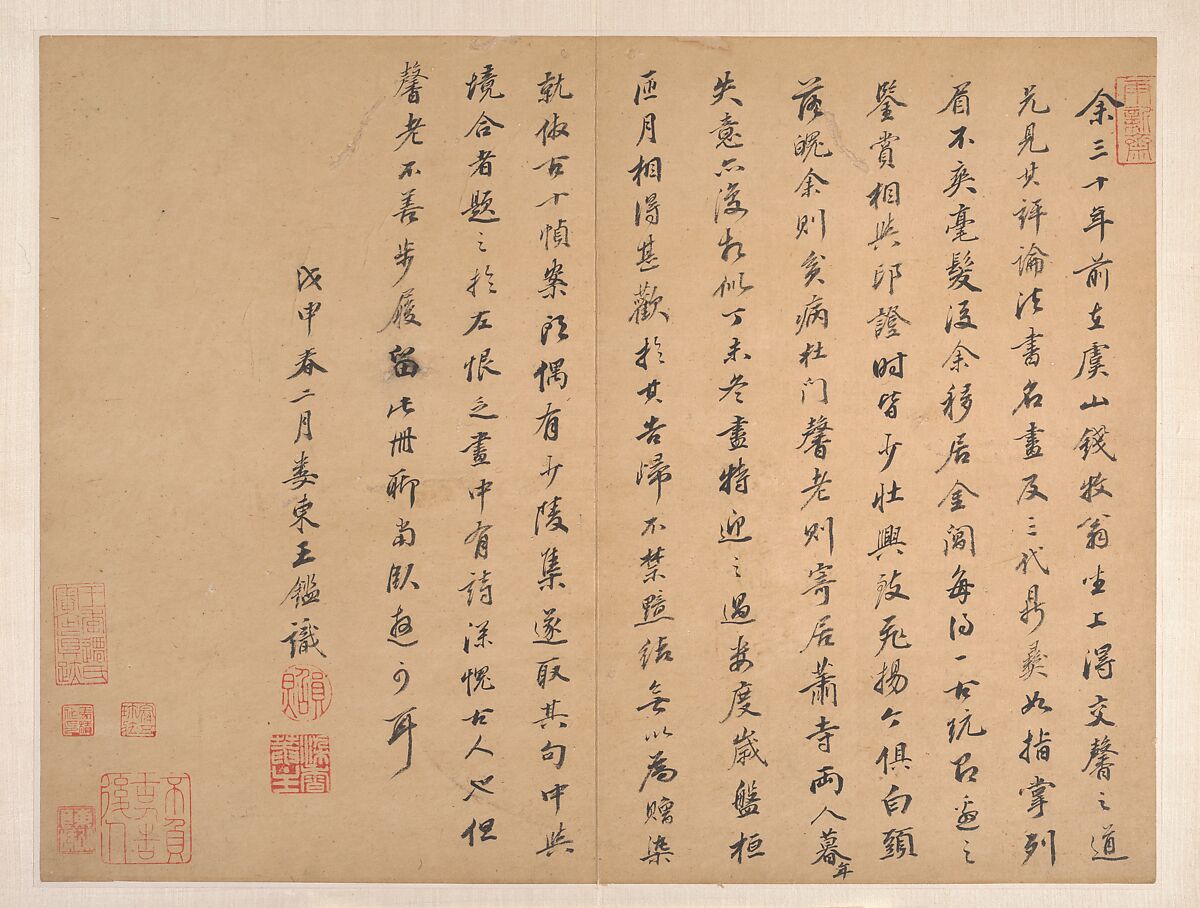 余三十年前在虞山錢牧翁坐上得交馨之道
兄見其評論法書名畫及三代鼎彝如指掌列
眉不爽毫髮後余移居金閶每得一古玩召邀之
鑒賞相與印證时皆少壯興致飛揚今俱白頭
落魄余則貧病杜門馨老則寄居蕭寺兩人暮年
失意亦復相似丁未冬盡特迎之過婁度歲盤桓
匝月相得甚歡於其告歸不禁黯結無以為贈染
就倣古十幀案頭偶有少陵集遂取其句中與
境合者題之於左恨乏畫中有詩深愧古人也但
馨老不善步履留此冊聊當臥遊可耳
戊申春二月婁東王鑑識
員照
染香菴主
不負古人告後人